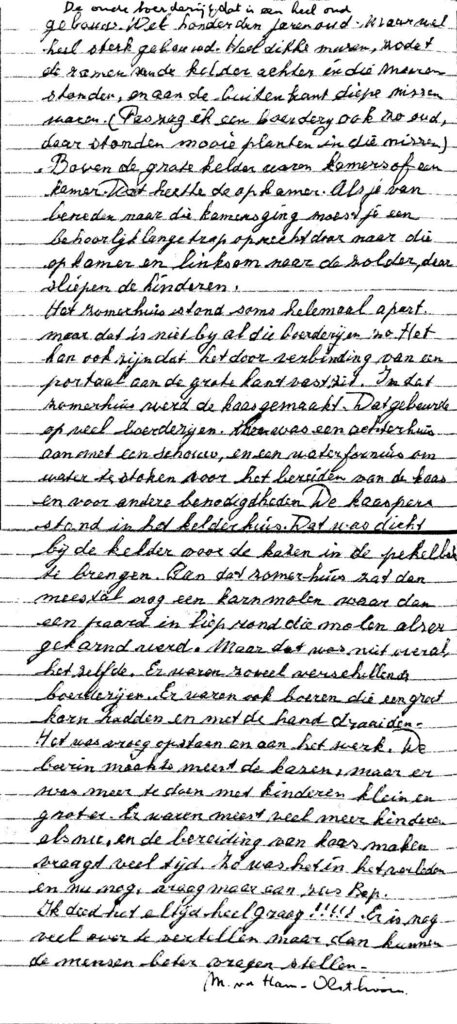 De oude boerderij, dat is een heel oud
gebouw. Wel honderden jaren oud. Maar wel
heel sterk gebouwd. Heel dikke muren, zodat
de ramen van de kelder achter in die muren
stonden, en aan de buitenkant diepe nissen
waren. (Pas zag ik een boerderij ook zo oud,
daar stonden mooie planten in die nissen)
. Boven de grote kelder waren kamers of een
kamer. Dat heette de opkamer. Als je van
beneden naar die kamers ging moest je een
behoorlijk lange trap op rechtdoor naar die
opkamer en linksom naar de zolder, daar
sliepen de kinderen.
Het zomerhuis stond soms helemaal apart.
maar dat is niet bij al die boerderijen zo. Het
kan ook zijn dat het door verbinding van een
portaal aan de grote kant vast zit. In dat
zomerhuis werd de kaas gemaakt. Dat gebeurde
op veel boerderijen. was een achterhuis
aan met een schouw, en een waterfornuis om
water te stoken voor het bereiden van de kaas
en voor andere benodigdheden. De kaaspers
stond in het kelderhuis. Dat was dicht
bij de kelder voor de kazen in de pekelbak
te brengen. Aan dat zomerhuis zat dan
meestal nog een karnmolen waar dan
een paard in liep rond die molen als er
gekarnd werd. Maar dat was niet overal
het zelfde. Er waren zoveel verschillende
boerderijen. Er waren ook boeren die een grote
karn hadden en met de hand draaiden.
Het was vroeg opstaan en aan het werk. De
boerin maakte meest de kazen, maar er
was meer te doen met kinderen klein en
groter. Er waren meest veel meer kinderen
als nu, en de bereiding van kaas maken
vraagt veel tijd. Zo was het in het verleden
en nu nog, vraag maar aan zus Rep.
Ik deed het altijd heel graag!!!!! Er is nog
veel over te vertellen maar dan kunnen
de mensen beter vragen stellen.
M. v. Ham -